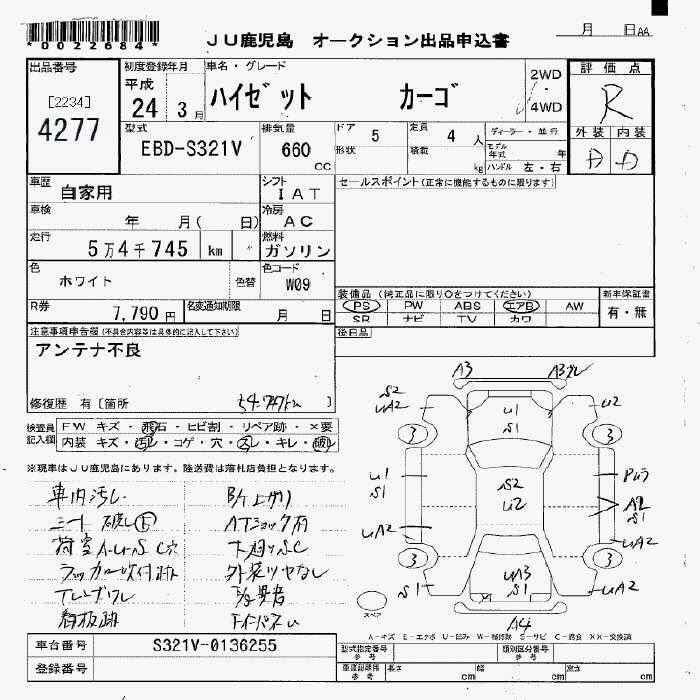 *0022684*
JU鹿児島 オークション出品申込書
月 日AA
出品番号
[2234]
4277
初度登録年月
平成
24 3月
車名・グレード
ハイゼット カーゴ
2WD
4WD
評価点
R
外装 内装
D D
型式
EBD-S321V
排気量
660
CC
ドア 5
形状
定員 4 人
積載 kg
ディーラー・並行
モデル年式 年
ハンドル 左・右
車歴
自家用
シフト
IAT
セールスポイント(正常に機能するものに限ります)
車検
年 月( 日)
冷房
AC
走行
5万4千745 km
燃料
ガソリン
色
ホワイト
色替
色コード
W09
R券
7,790円
名変通知期限
月 日
装備品(純正品に限り○をつけてください)
PS PW ABS エアB AW
SR ナビ TV カワ
新車保証書
有・無
後日品
注意事項申告欄(不具合内容等は具体的に記入して下さい)
アンテナ不良
修復歴 有[箇所 ]
検査員記入欄
FW キズ・飛石・ヒビ割・リペア跡・×要
内装 キズ・汚レ・コゲ・穴・スレ・キレ・破レ
※現車はJU鹿児島にあります。陸送費は落札店負担となります。
車内汚レ
シート破レ
荷室A-U-S C穴
ラッカー吹付跡
看板跡
ATショック有
下廻りSC
外装ツヤなし
A3
S2
UA2
U1
S1
U2
3
3
U1
S1
S2
U2
A2
S1
UA2
UA2
3
3
S1
UA3
S1
UA2
A4
スペア
A-キズ E-エクボ U-凹み W-補修跡 S-サビ C-腐食 XX-交換済
車台番号
S321V-0136255
登録番号
型式指定番号
参考
類別区分番号
参考
車庫証明用
参考
長さ cm
幅 cm
高さ cm